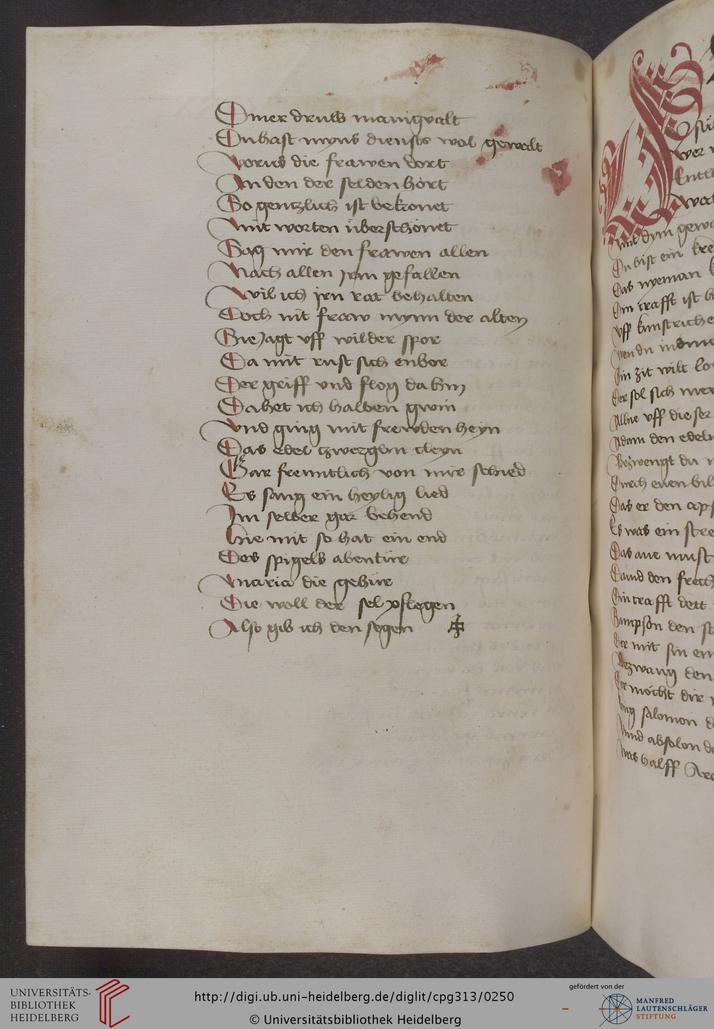 Diner druws manigvalt
Du hast myns diensts wol gewalt
Vorus die frawen dort
An den der selden hort
So gentzlich ist bekronet
Mit worten überschönet
Sag mir den frawen allen
Nach allen irm gefallen
Wil ich irn rat behalten
Doch nit fraw mynn der alten
Sie jagt vff wilder spor
Da mit rust sich enbor
Der greiff vnd flog da hin
Da het ich halben gwin
Vnd ging mit frewden heyn
Das edel zwerglin cleyn
Gar frenntlich von mir schied
Es sang ein heylig lied
Im selber gar behend
Hie mit so hat ein end
Des spigels abentüre
Maria die gehüre
Die woll der sel pflegen
Also gib ich den segen
Mit dym gew
Du bist ein kre
Das nyeman
Din crafft ist
Vff kunstriche
Wen du
Din zit wilt
Der sol sich
Allue vff dieser
Adam den edeln
Bezwengt du
Durch euen
Das er den
Es was ein
Das aue must
Dauid den
Din crafft dett
Sampson den
Der mit sin
Bezwang den
Der mocht dir
kung salomon d
Vnd absolon d
Was halff
UNIVERSITÄTS-
BIBLIOTHEK
HEIDELBERG
http://digi.ub.uni-heidelberg.de/diglit/cpg313/0250
© Universitätsbibliothek Heidelberg
gefördert von der
MANFRED
LAUTENSCHLÄGER
STIFTUNG